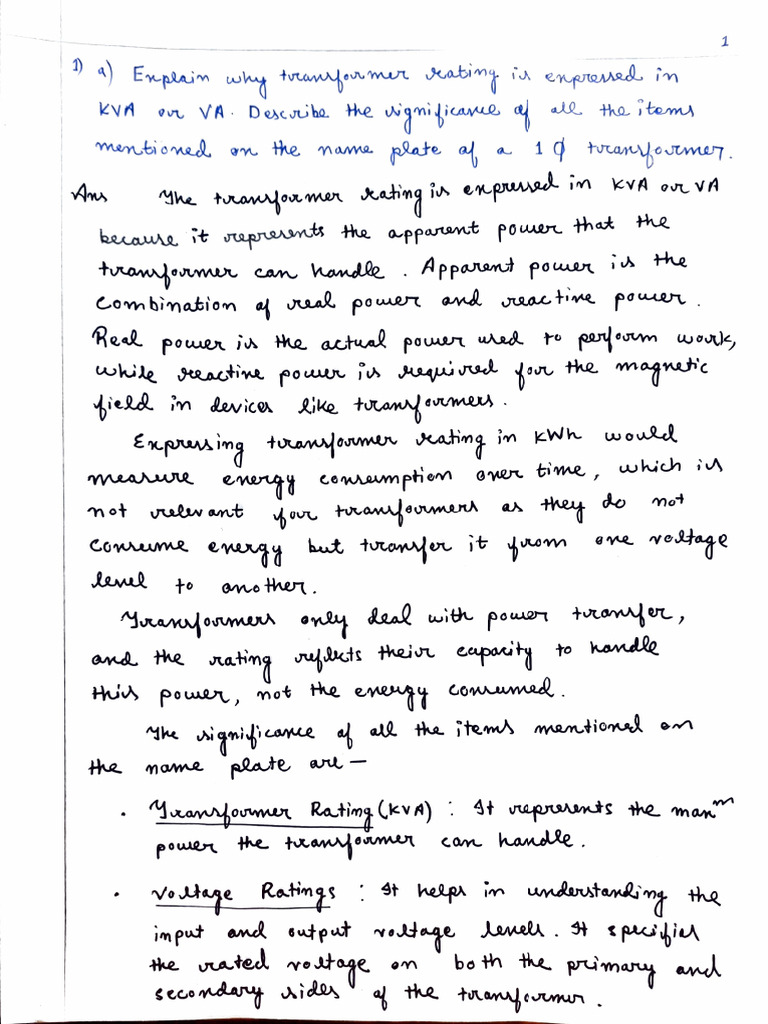 1
1) a) Explain why transformer rating is expressed in
KVA or VA. Describe the significance of all the items
mentioned on the name plate of a 1 φ transformer.
Ans The transformer rating is expressed in KVA or VA
because it represents the apparent power that the
transformer can handle. Apparent power is the
combination of real power and reactive power.
Real power is the actual power used to perform work,
while reactive power is required for the magnetic
field in devices like transformers.
Expressing transformer rating in KWh would
measure energy consumption over time, which is
not relevant for transformers as they do not
consume energy but transfer it from one voltage
level to another.
Transformers only deal with power transfer,
and the rating reflects their capacity to handle
this power, not the energy consumed.
The significance of all the items mentioned on
the name plate are —
• Transformer Rating (KVA) : It represents the maxm
power the transformer can handle.
• Voltage Ratings : It helps in understanding the
input and output voltage levels. It specifies
the rated voltage on both the primary and
secondary sides of the transformer.